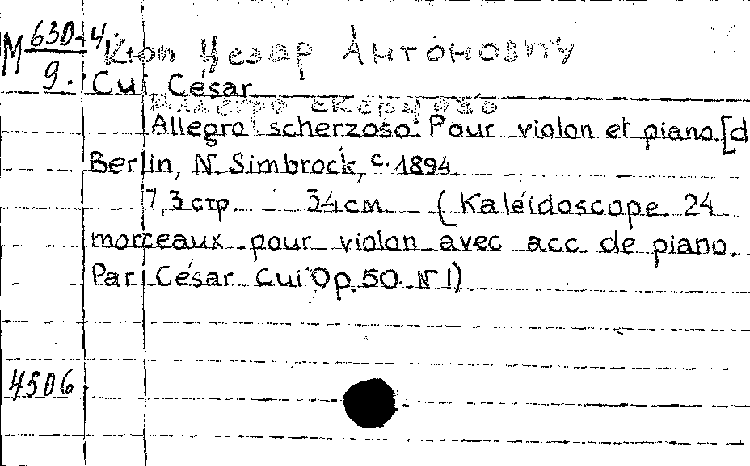 М 630-4 Кюи Цезар Антонович
9. Cui César
Allegro scherzoso. Pour violon et piano. [d
Berlin, N. Simbrock, c. 1894
7,3 стр. 34 см (Kaléidoscope 24
morceaux pour violon avec acc de piano.
Par César Cui Op. 50 N 1)
4506